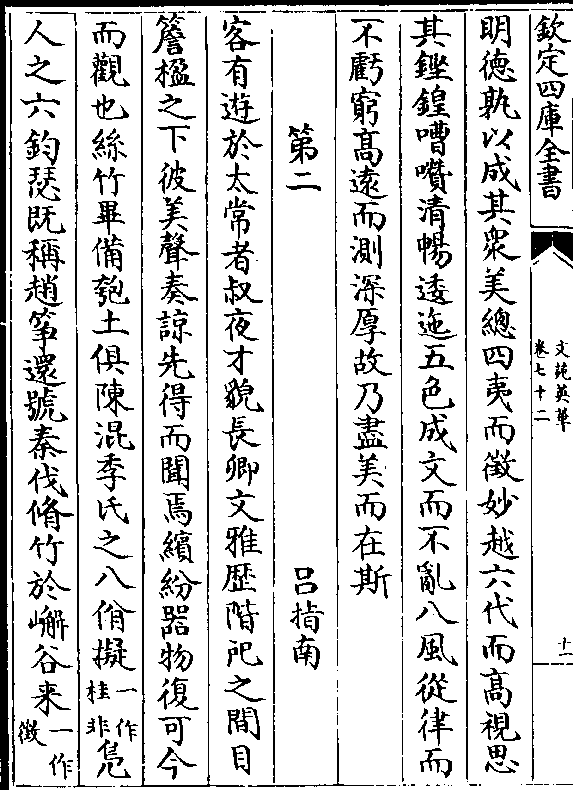 欽定四庫全書
文苑英華
卷七十二
十一
明德孰以成其衆美總四夷而徵妙越六代而髙視思
其鏗鍠嘈囋清暢逶迤五色成文而不亂八風從律而
不虧窮髙遠而測深厚故乃盡美而在斯
第二
吕指南
客有遊於太常者叔夜才貌長卿文雅歴階戺之間目
簷楹之下彼美聲奏諒先得而聞焉繽紛器物復可今
而觀也絲竹畢備匏土俱陳混季氏之八佾擬一作桂非鳬
人之六鈞瑟既稱趙筝還號秦伐脩竹於嶰谷来一作徵